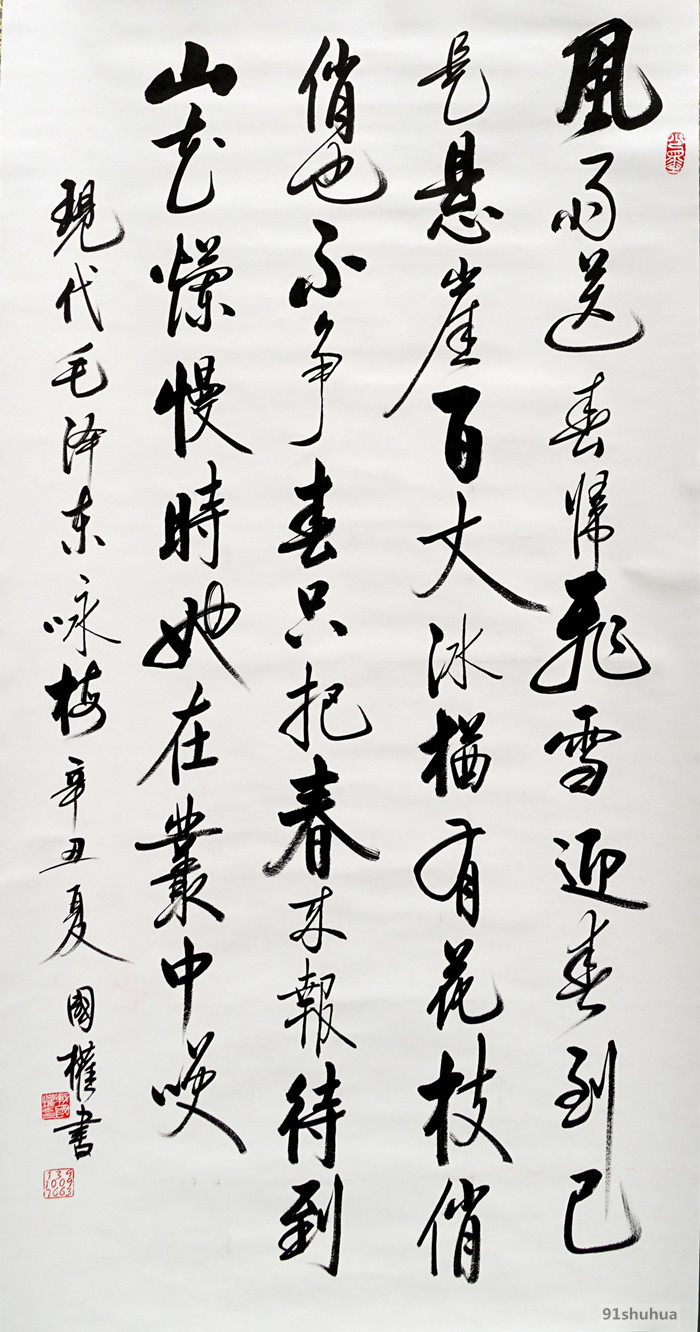 風雨送春歸飛雪迎春到已
是悬崖百丈冰楢有花枝俏
俏也不争春只把春来報待到
山花爛慢時她在叢中咲
現代毛泽东咏梅辛丑夏國權書
91shuhua